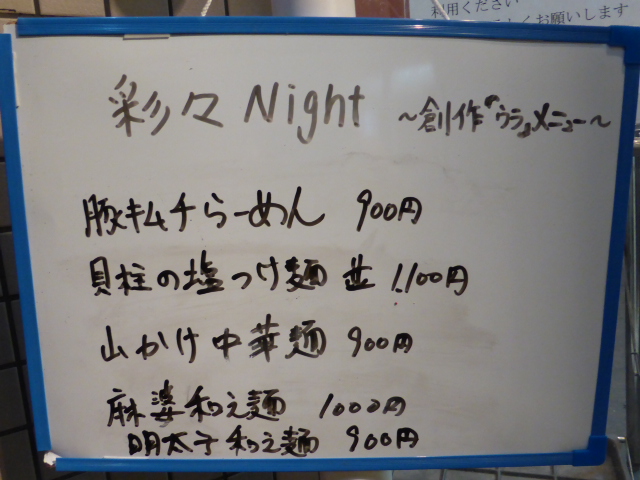 利用ください
くお願いします
彩々 Night ～創作『ウラ』メニュー～
豚キムチらーめん 900円
貝柱の塩つけ麺 並 1,100円
山かけ中華麺 900円
麻婆和え麺 1000円
明太子和え麺 900円